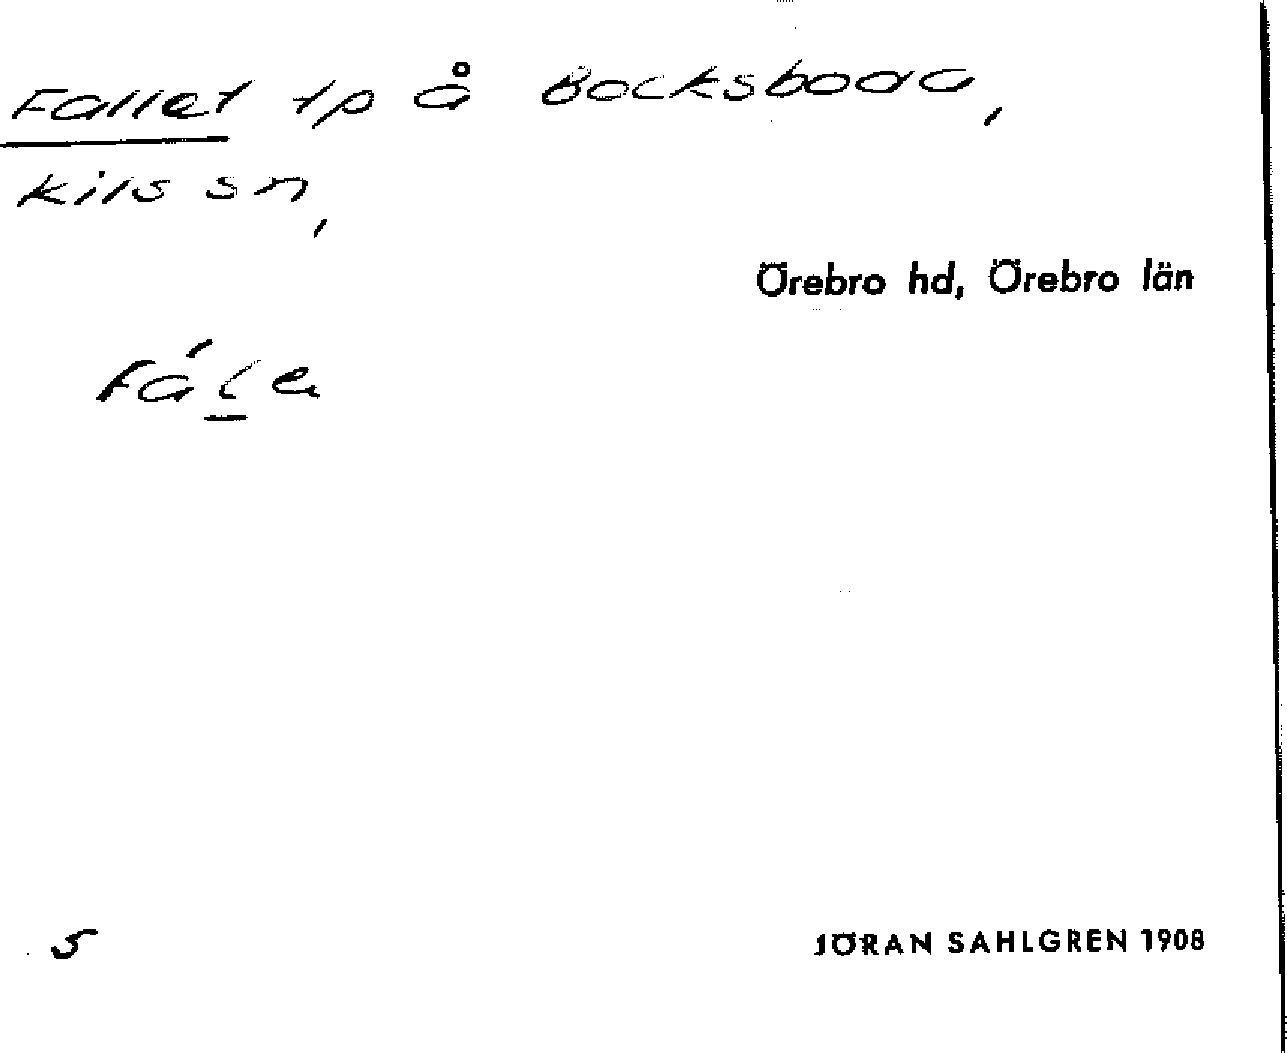 Fallet tp å Bocksboda,
Kils sn,
Örebro hd, Örebro län
fál̲e
5
JÖRAN SAHLGREN 1908